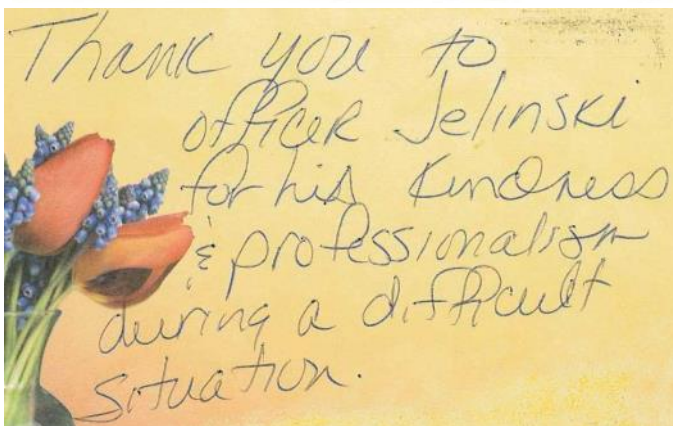 Thank you to
officer Jelinski
for his Kindness
& professionalism
during a difficult
situation.